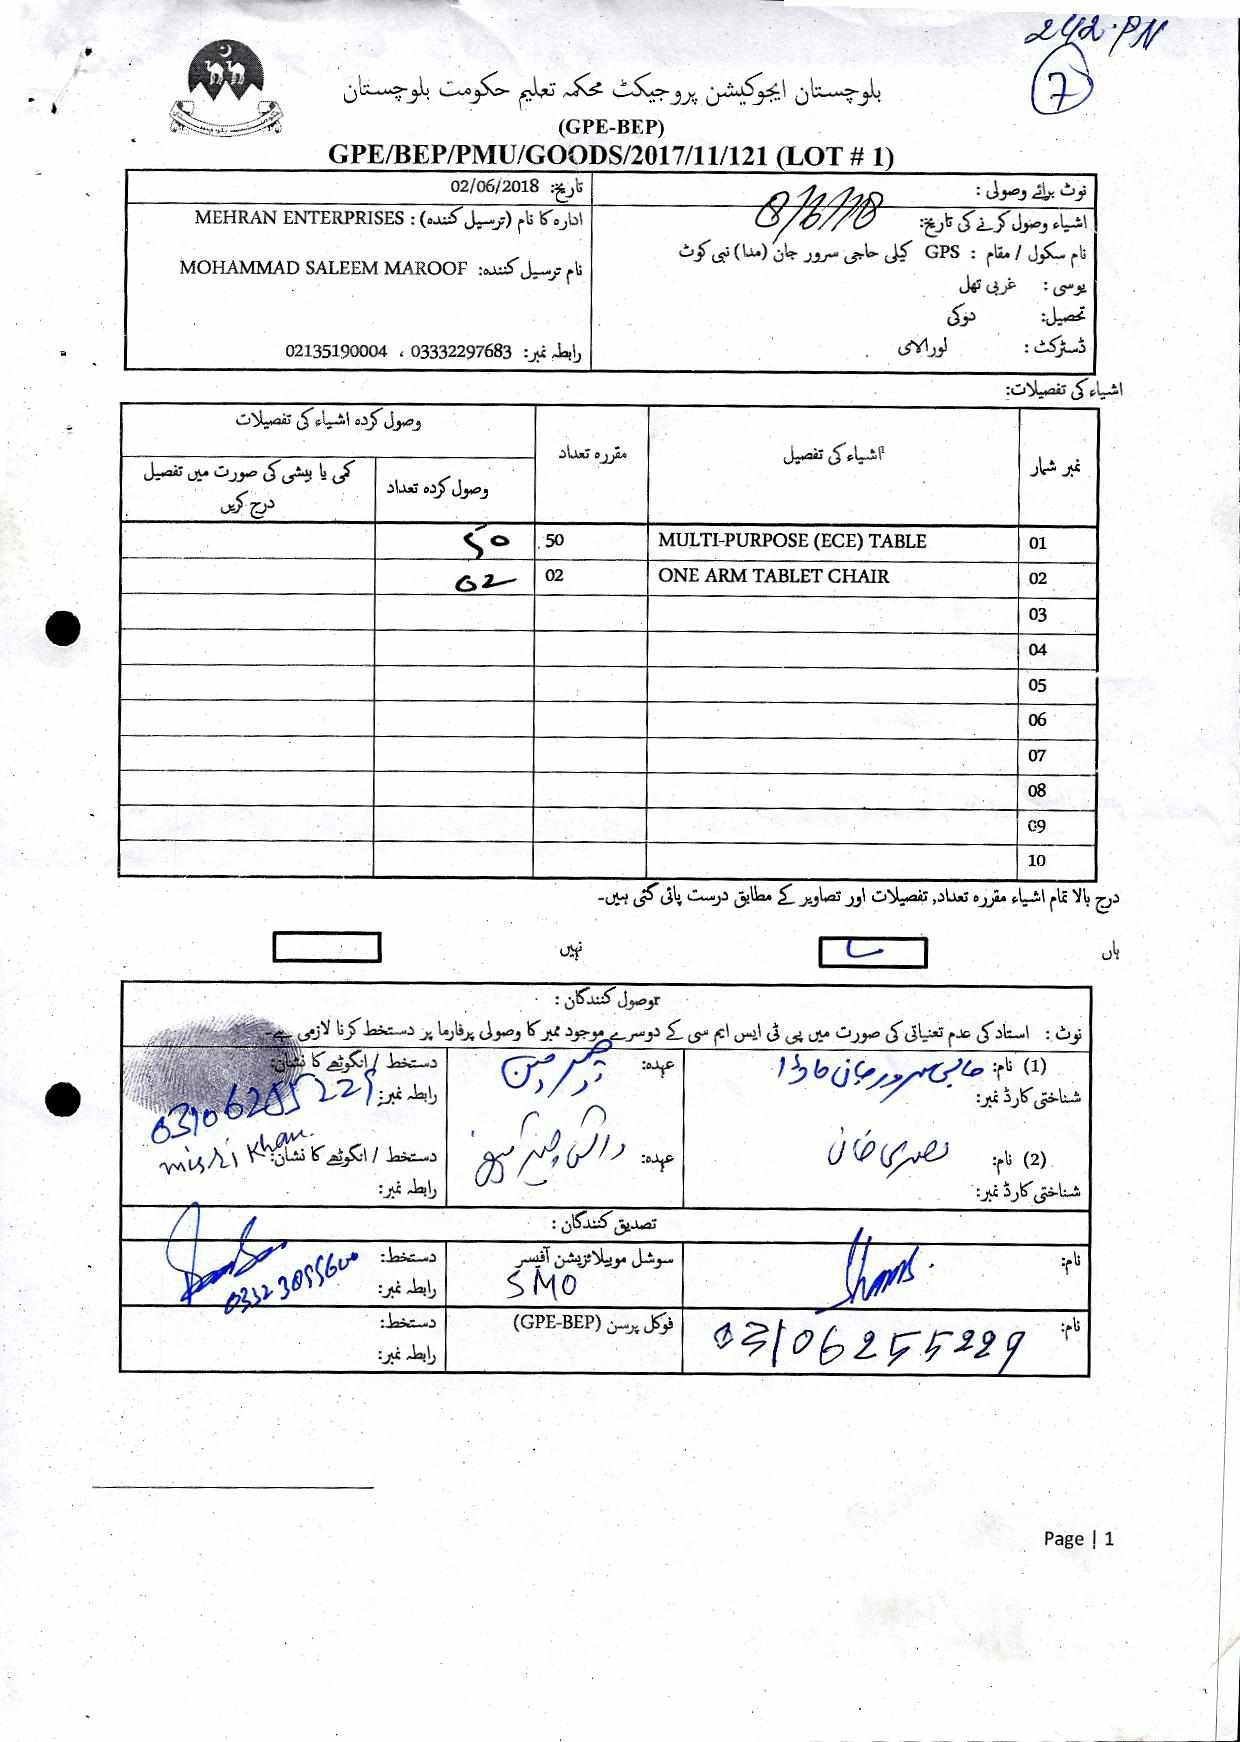 242-PN
7
بلوچستان ایجوکیشن پروجیکٹ محکمہ تعلیم حکومت بلوچستان
(GPE-BEP)
GPE/BEP/PMU/GOODS/2017/11/121 (LOT # 1)
نوٹ برائے وصولی :
تاریخ: 02/06/2018
اشیاء وصول کرنے کی تاریخ:
ادارہ کا نام (ترسیل کنندہ) : MEHRAN ENTERPRISES
نام سکول / مقام : GPS کیلی حاجی سرور جان (مدا) نبی کوٹ
نام ترسیل کنندہ: MOHAMMAD SALEEM MAROOF
یوسی : غربی تھل
تحصیل: دوکی
ڈسٹرکٹ : لورالائی
رابطہ نمبر: 03332297683 ، 02135190004
اشیاء کی تفصیلات:
نمبر شمار اشیاء کی تفصیل مقررہ تعداد وصول کردہ اشیاء کی تفصیلات
وصول کردہ تعداد کمی یا بیشی کی صورت میں تفصیل درج کریں
01 MULTI-PURPOSE (ECE) TABLE 50 50
02 ONE ARM TABLET CHAIR 02 02
03
04
05
06
07
08
09
10
درج بالا تمام اشیاء مقررہ تعداد, تفصیلات اور تصاویر کے مطابق درست پائی گئی ہیں۔
ہاں نہیں
وصول کنندگان :
نوٹ : استاد کی عدم تعیناتی کی صورت میں پی ٹی ایس ایم سی کے دوسرے موجود ممبر کا وصولی پرفارما پر دستخط کرنا لازمی ہے۔
(1) نام: حاجی سرور جان عہدہ: چیئرمین دستخط / انگوٹھے کا نشان:
شناختی کارڈ نمبر: رابطہ نمبر:
(2) نام: مصری خان عہدہ: دستخط / انگوٹھے کا نشان: misri Khan
شناختی کارڈ نمبر: رابطہ نمبر:
تصدیق کنندگان :
نام: سوشل موبیلائزیشن آفیسر SMO دستخط:
رابطہ نمبر:
نام: 03106255229 فوکل پرسن (GPE-BEP) دستخط:
رابطہ نمبر:
Page | 1